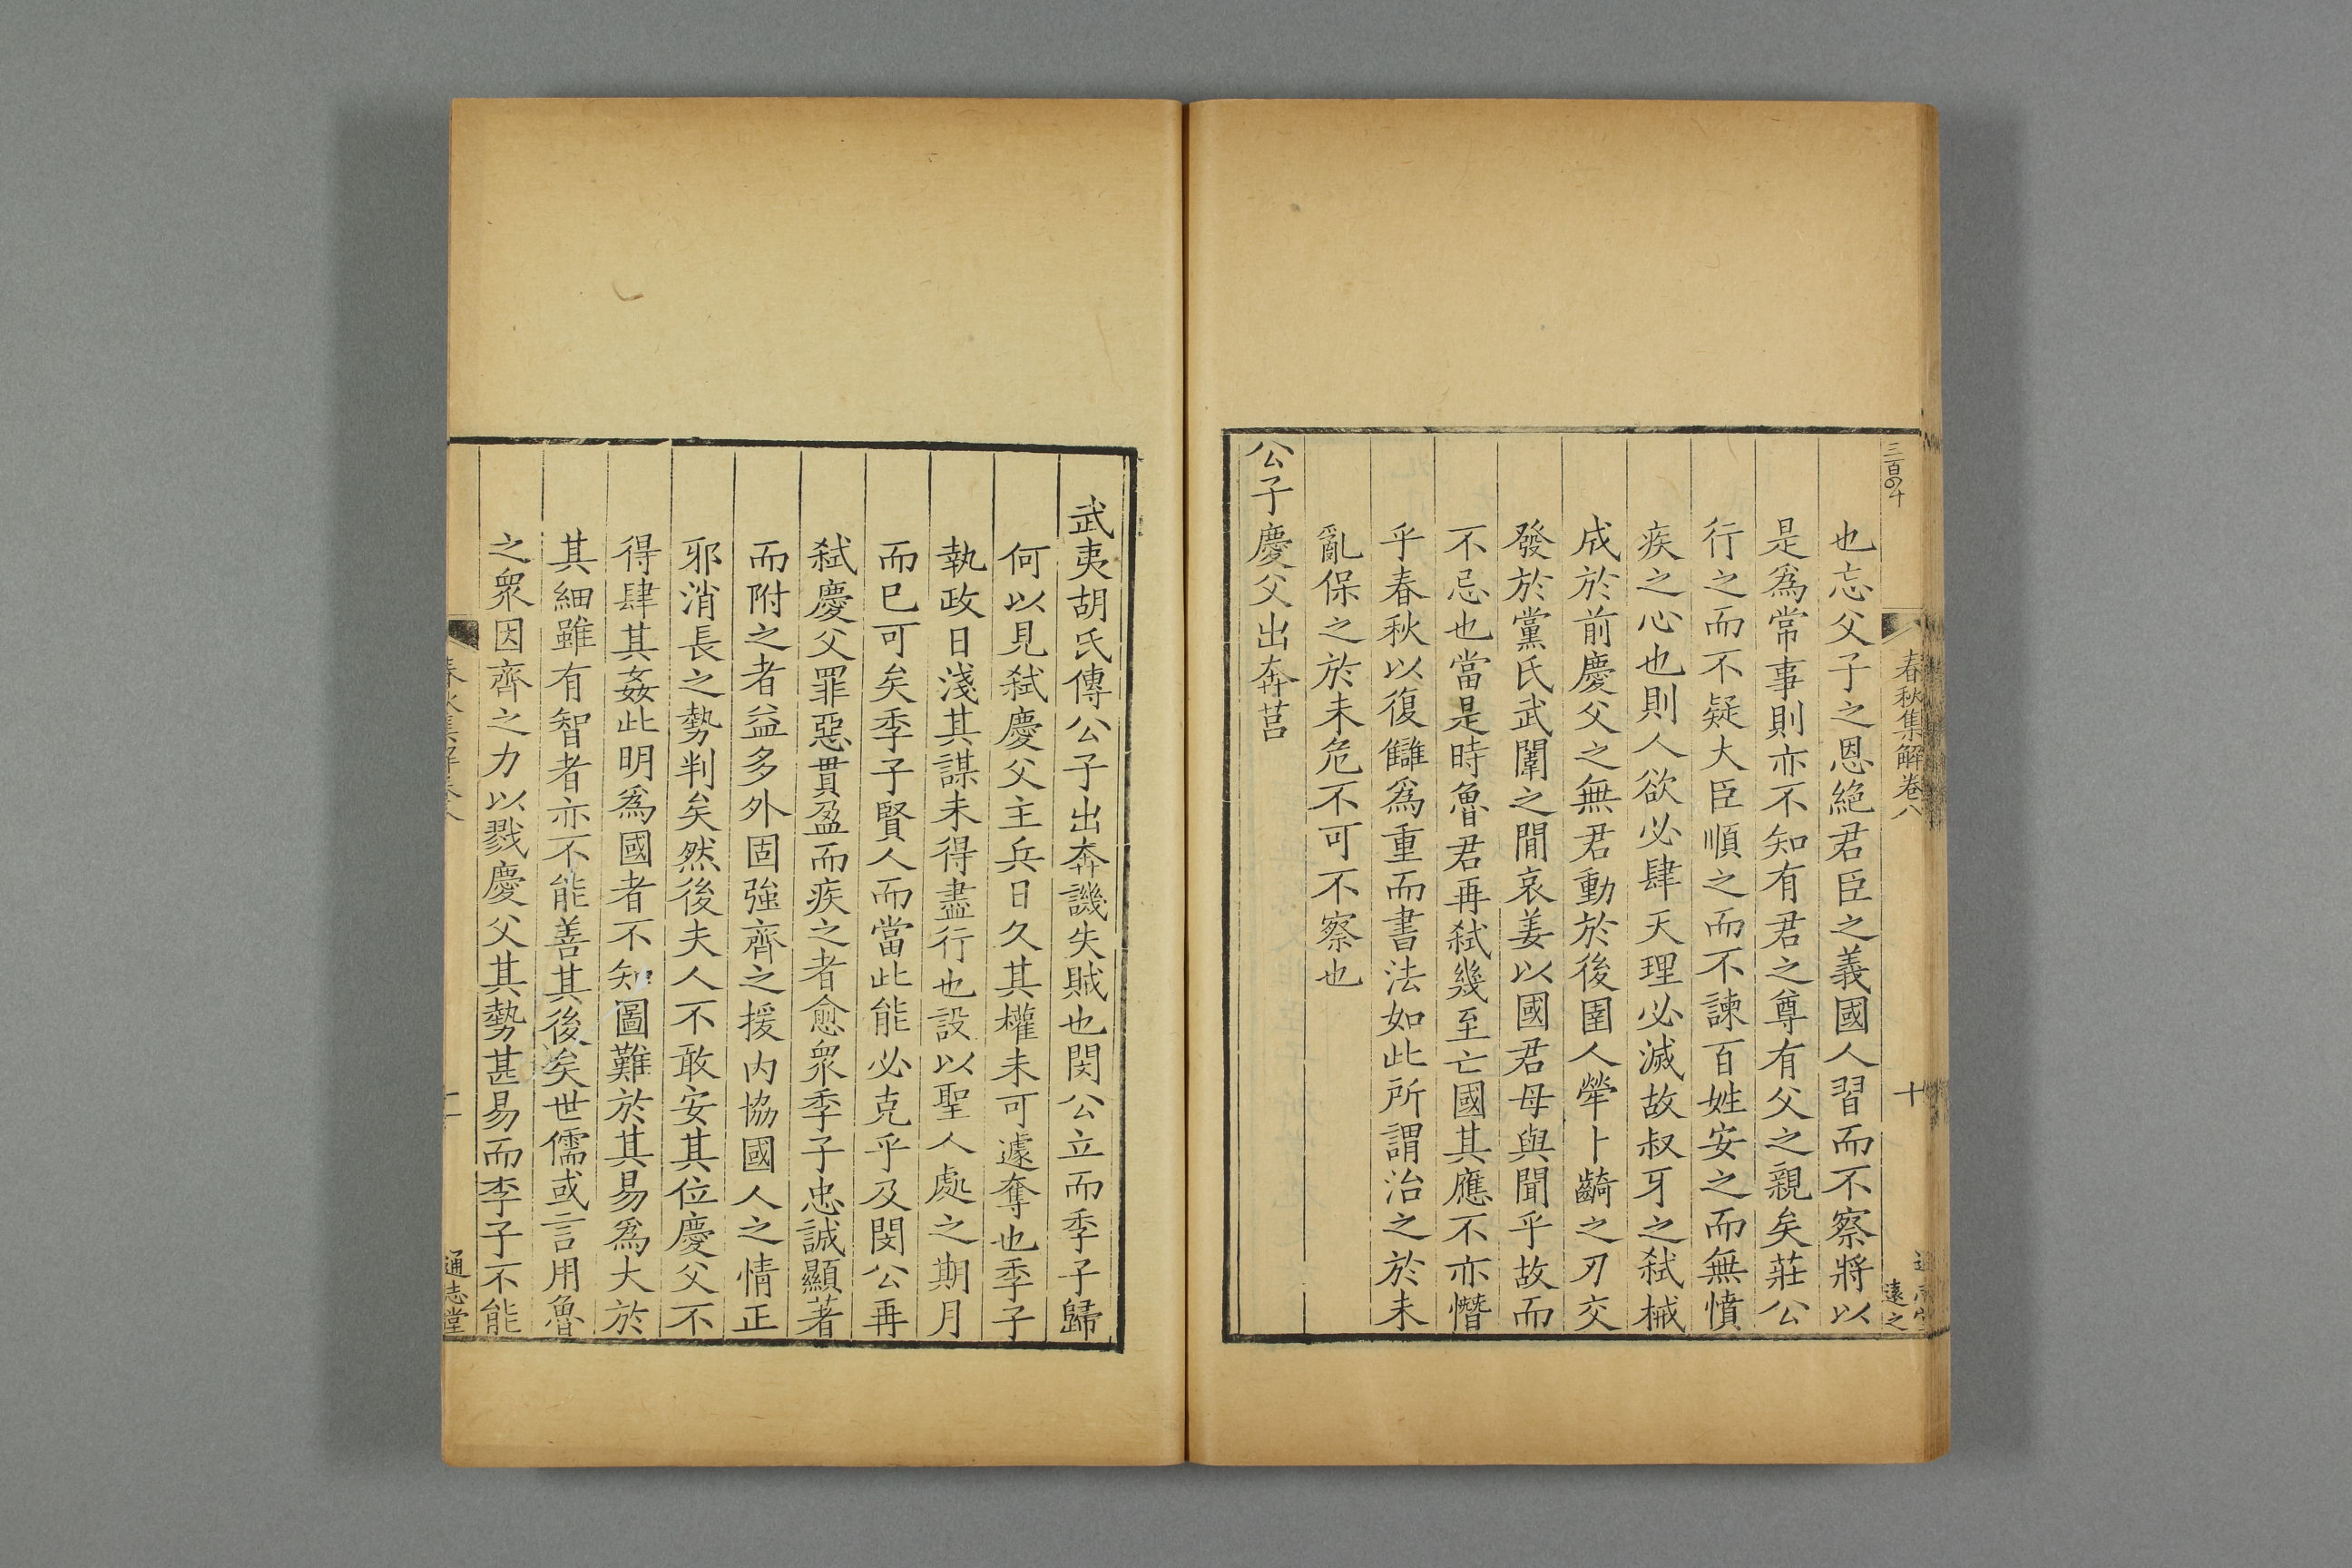 三百四十
春秋集解卷八
十
遠之
也忘父子之恩絶君臣之義國人習而不察將以
是爲常事則亦不知有君之尊有父之親矣莊公
行之而不疑大臣順之而不諫百姓安之而無憤
疾之心也則人欲必肆天理必滅故叔牙之弑械
成於前慶父之無君動於後圉人犖卜齮之刃交
發於黨氏武闈之閒哀姜以國君母與聞乎故而
不忌也當是時魯君再弑幾至亡國其應不亦憯
乎春秋以復讎爲重而書法如此所謂治之於未
亂保之於未危不可不察也
公子慶父出奔莒
武夷胡氏傳公子出奔譏失賊也閔公立而季子歸
何以見弑慶父主兵日久其權未可遽奪也季子
執政日淺其謀未得盡行也設以聖人處之期月
而已可矣季子賢人而當此能必克乎及閔公再
弑慶父罪惡貫盈而疾之者愈衆季子忠誠顯著
而附之者益多外固強齊之援内協國人之情正
邪消長之勢判矣然後夫人不敢安其位慶父不
得肆其姦此明爲國者不知圖難於其易爲大於
其細雖有智者亦不能善其後矣世儒或言用魯
之衆因齊之力以戮慶父其勢甚易而李子不能
春秋集解卷八
通志堂